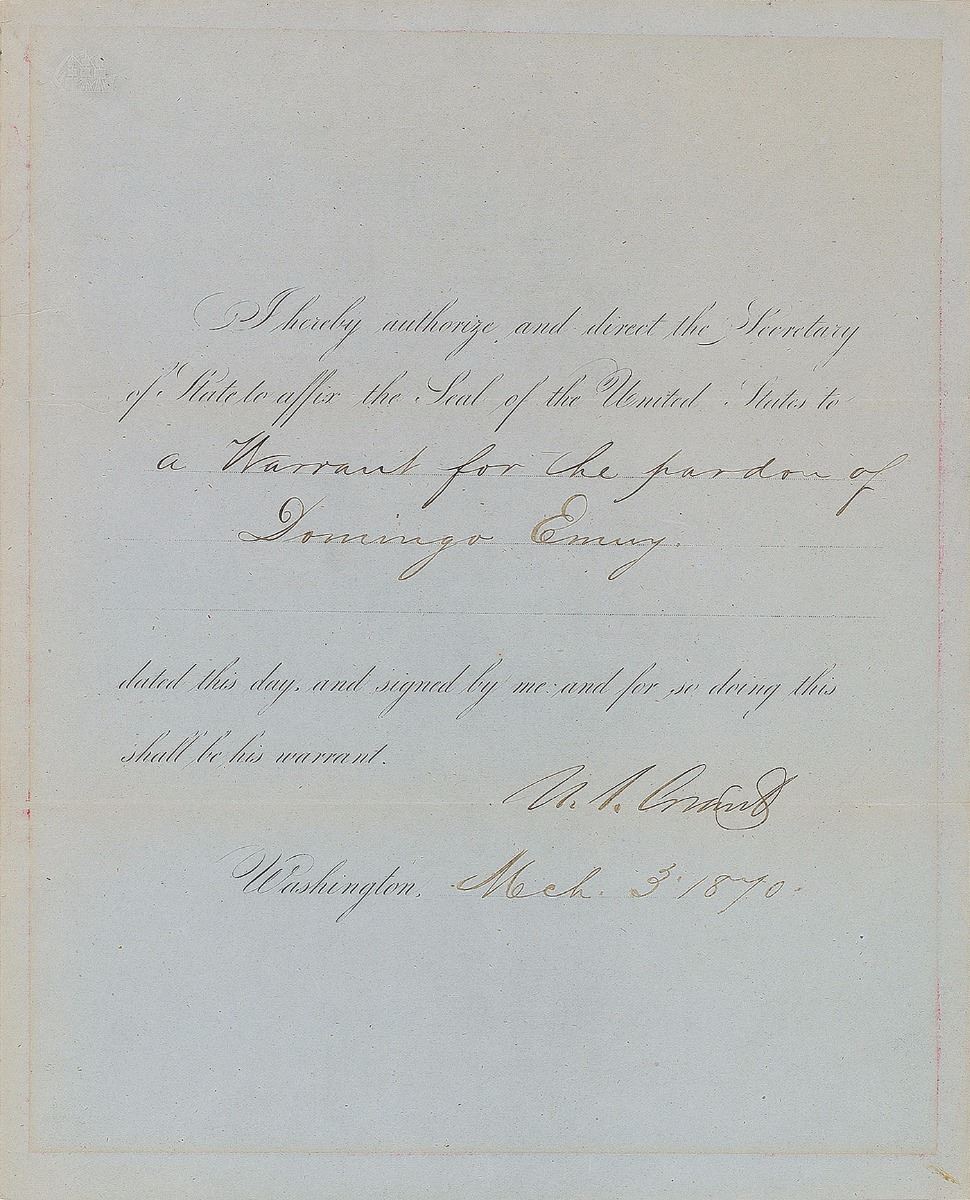 I hereby authorize and direct the Secretary
of State to affix the Seal of the United States to
a Warrant for the pardon of
Domingo Emuy.
dated this day, and signed by me: and for so doing this
shall be his warrant.
U. S. Grant
Washington, Mch. 3 1870.